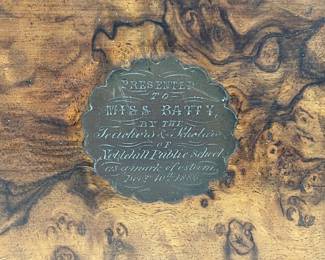 PRESENTED
TO
MISS BATTY,
BY THE
Teachers & Scholars
OF
Noblehill Public School
as a mark of esteem
Decr. 10th.